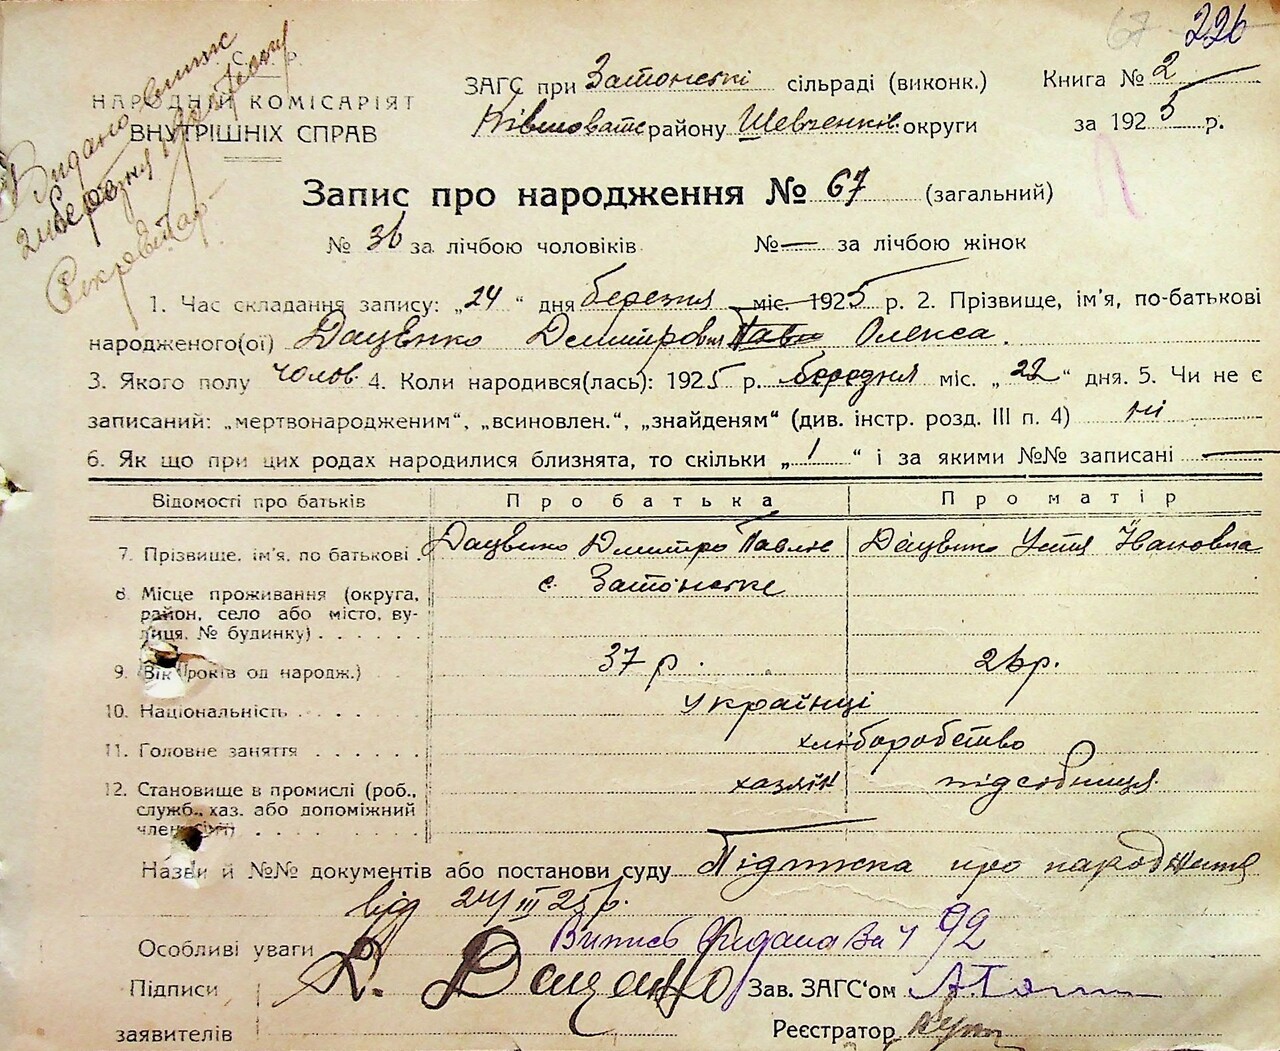 67 226
С. Р. Р.
ЗАГС при Затонські сільраді (виконк.) Книга № 2
НАРОДНІЙ КОМІСАРІЯТ
ВНУТРІШНІХ СПРАВ
району Шевченків. округи за 1925 р.
Видано випис
Секретар
Запис про народження № 67 (загальний)
№ 36 за лічбою чоловіків № — за лічбою жінок
1. Час складання запису: „24" дня березня міс. 1925 р. 2. Прізвище, ім'я, по-батькові
народженого(ої) Даценко Демитрович Павло Олекса.
3. Якого полу чолов. 4. Коли народився(лась): 1925 р. березня міс. „22" дня. 5. Чи не є
записаний: „мертвонародженим", „всиновлен.", „знайденям" (див. інстр. розд. III п. 4) ні
6. Як що при цих родах народилися близнята, то скільки „1" і за якими №№ записані —
Відомості про батьків Про батька Про матір
7. Прізвище, ім'я, по батькові Даценко Дмитро Павлов Даценко Устя Івановна
8. Місце проживання (округа, с. Затонське
район, село або місто, вулиця, № будинку)
9. Вік (років од народж.) 37 р. 26 р.
10. Національність українці
11. Головне заняття хліборобство
12. Становище в промислі (роб., хазяїн підсобниця
служб., хаз. або допоміжний
член сім'ї)
Назви й №№ документів або постанови суду Підписка про народження
від 24/III 25 р.
Особливі уваги Випись видана за ч 92
Підписи Даценко Зав. ЗАГС'ом
заявителів Реєстратор